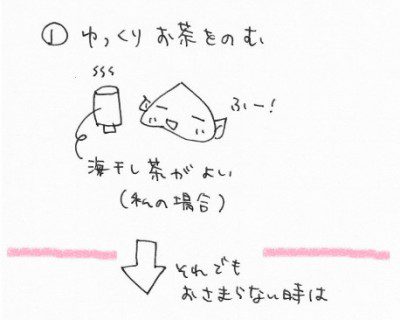 ① ゆっくりお茶をのむ
ふー!
海干し茶がよい
(私の場合)
それでも
おさまらない時は